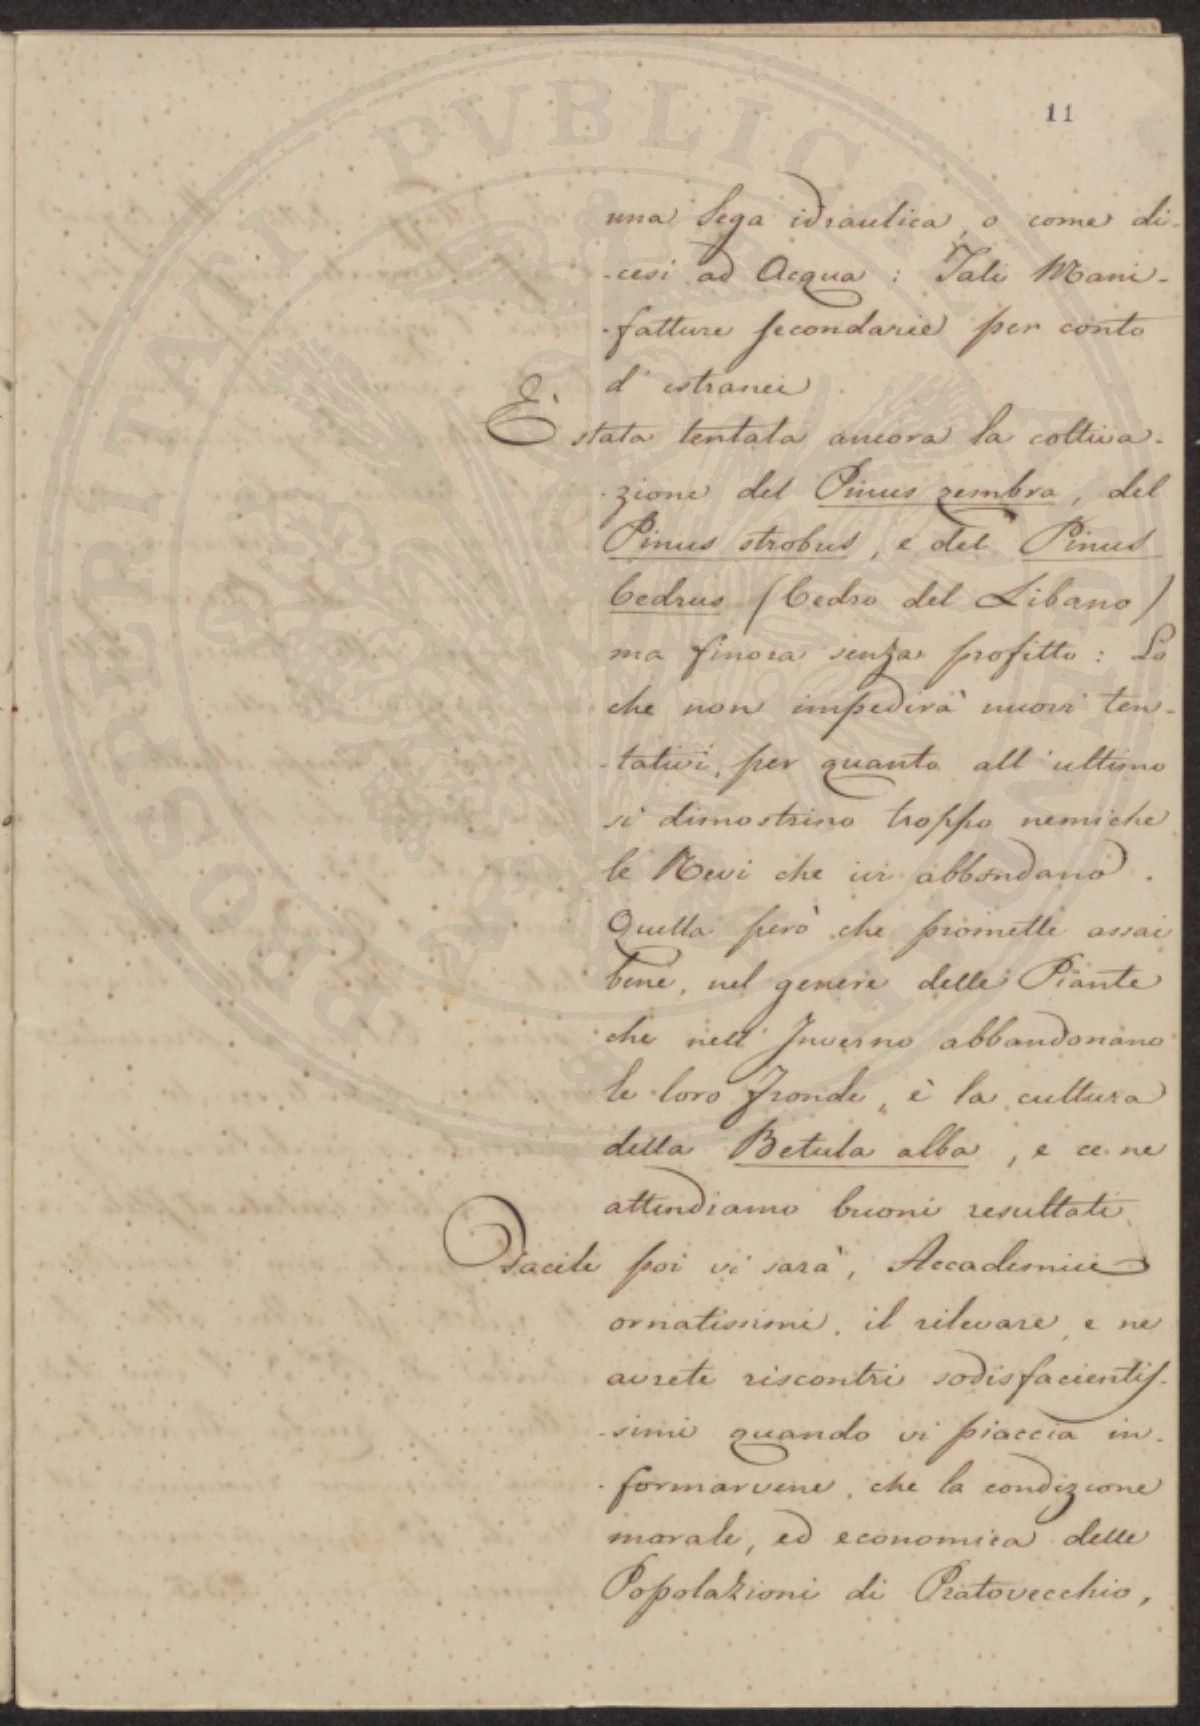 PROSPERITATI PVBLICAE
11
una Sega idraulica, o come di-
-cesi ad Acqua : Tali Mani-
-fatture secondarie per conto
d' estranei.
È stata tentata ancora la coltiva-
-zione del Pinus zembra, del
Pinus strobus, e del Pinus
Cedrus (Cedro del Libano)
ma finora senza profitto : Lo
che non impedirà nuovi ten-
-tativi, per quanto all' ultimo
si dimostrino troppo nemiche
le Nevi che ivi abbondano.
Quella però che promette assai
bene, nel genere delle Piante
che nell' Inverno abbandonano
le loro Fronde, è la cultura
della Betula alba, e ce ne
attendiamo buoni resultati.
Facile poi vi sarà, Accademici
ornatissimi, il rilevare, e ne
avrete riscontri sodisfacientis-
-simi quando vi piaccia in-
-formarvene, che la condizione
morale, ed economica delle
Popolazioni di Pratovecchio,